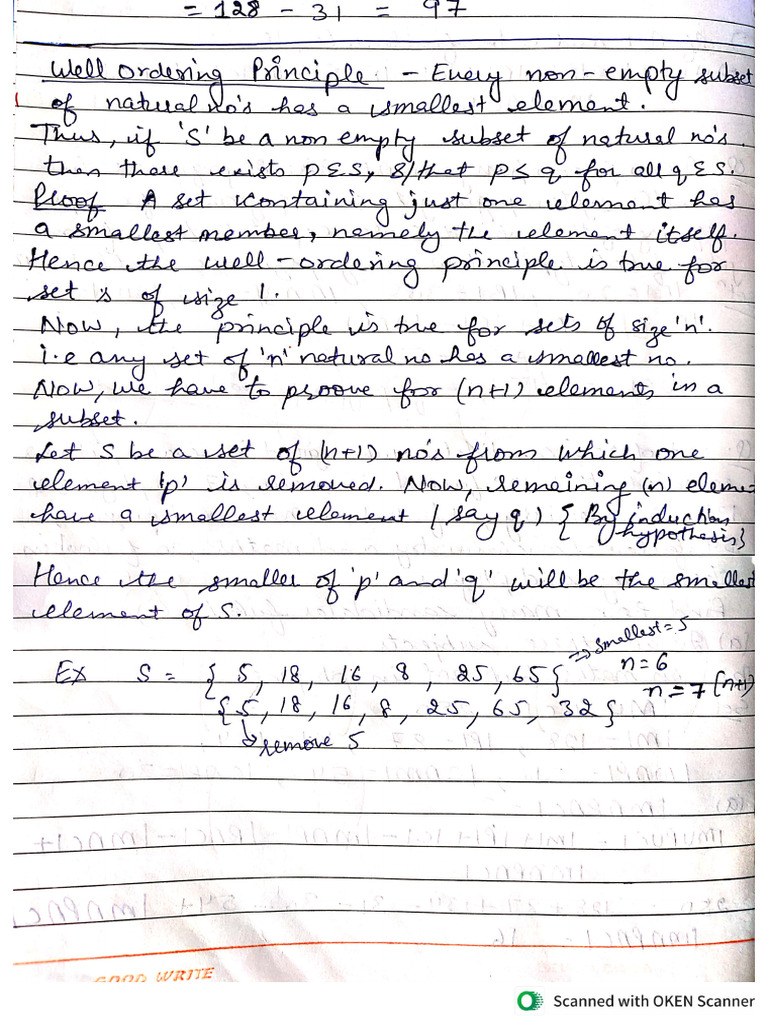 = 128 - 31 = 97
Well Ordering Principle - Every non-empty subset
of natural no's has a smallest element.
Thus, if 'S' be a non empty subset of natural no's.
then there exists p ε S, s/that p ≤ q for all q ε S.
Proof A set containing just one element has
a smallest member, namely the element itself.
Hence the well-ordering principle is true for
set s of size 1.
Now, the principle is true for sets of size 'n'.
i.e any set of 'n' natural no has a smallest no.
Now, we have to proove for (n+1) elements in a
subset.
Let S be a set of (n+1) no's from which one
element 'p' is removed. Now, remaining (n) eleme
have a smallest element (say q) { By induction
hypothesis}
Hence the smaller of 'p' and 'q' will be the smallest
element of S.
Ex S = { 5, 18, 16, 8, 25, 65} ⇒ smallest = 5
n = 6
n = 7 (n+1)
{5, 18, 16, 8, 25, 65, 32}
↳ remove 5
GOOD WRITE
Scanned with OKEN Scanner